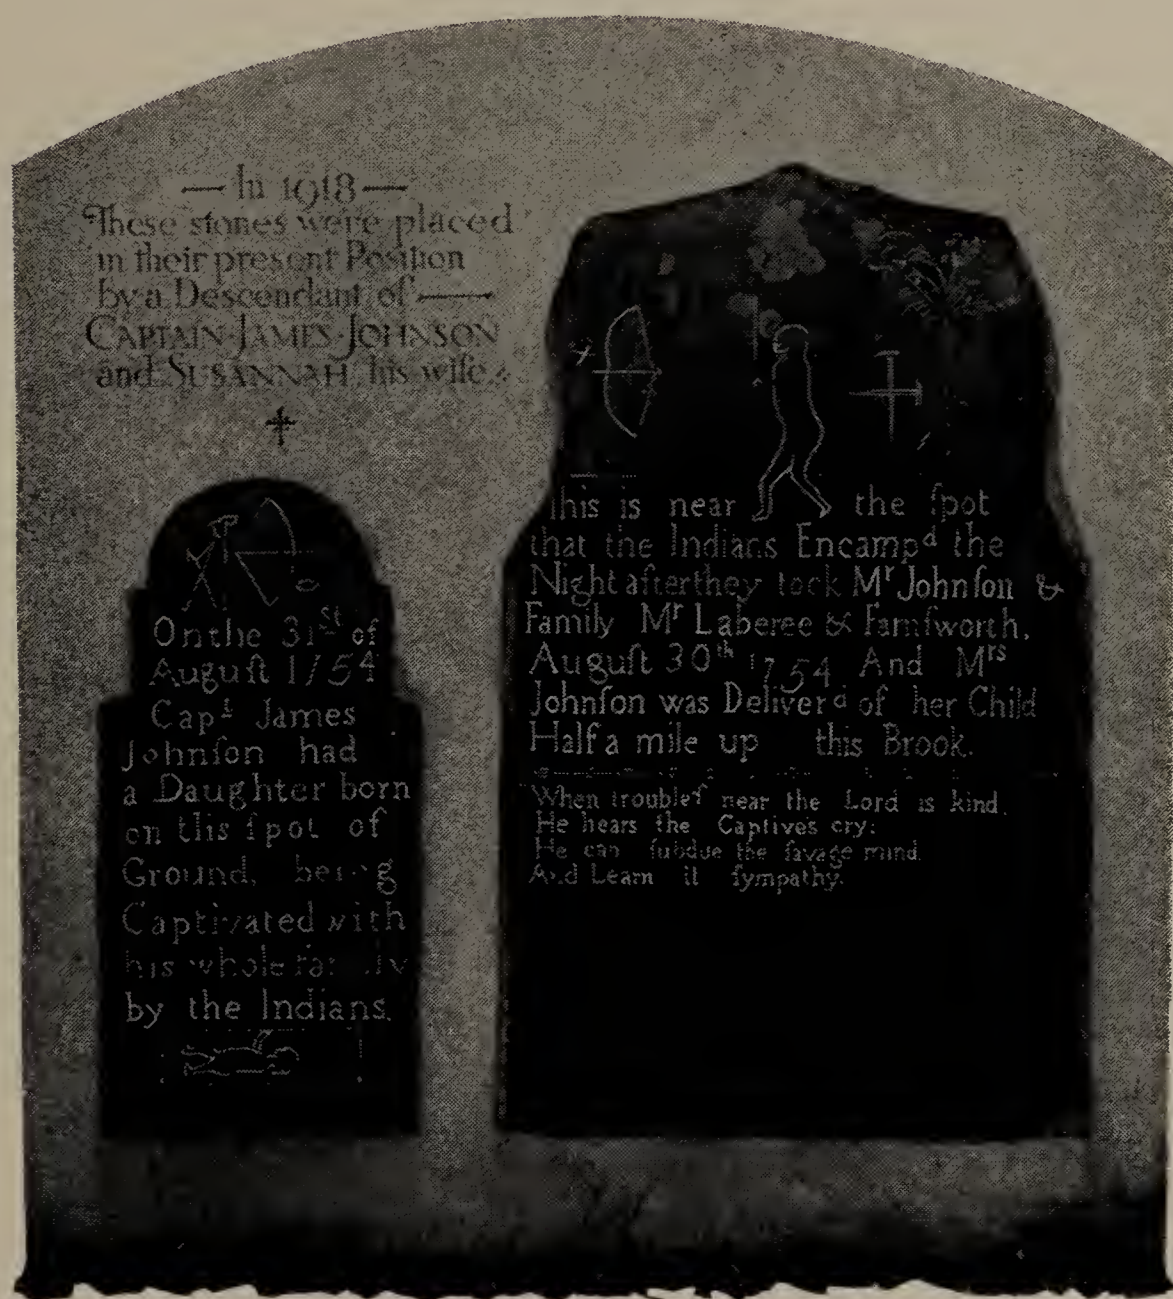 — In 1918 —
These stones were placed
in their present Position
by a Descendant of —
CAPTAIN·JAMES·JOHNSON
and SUSANNAH his wife
On the 31st of
Auguſt 1754
Capt James
Johnſon had
a Daughter born
on this ſpot of
Ground, being
Captivated with
his whole family
by the Indians.
This is near the ſpot
that the Indians Encampd the
Night after they took Mr Johnſon &
Family Mr Laberee & Farnſworth,
Auguſt 30th 1754 And Mrs
Johnſon was Deliverd of her Child
Half a mile up this Brook.
When troubleſ near the Lord is kind,
He hears the Captives cry:
He can ſubdue the ſavage mind,
And Learn it ſympathy.